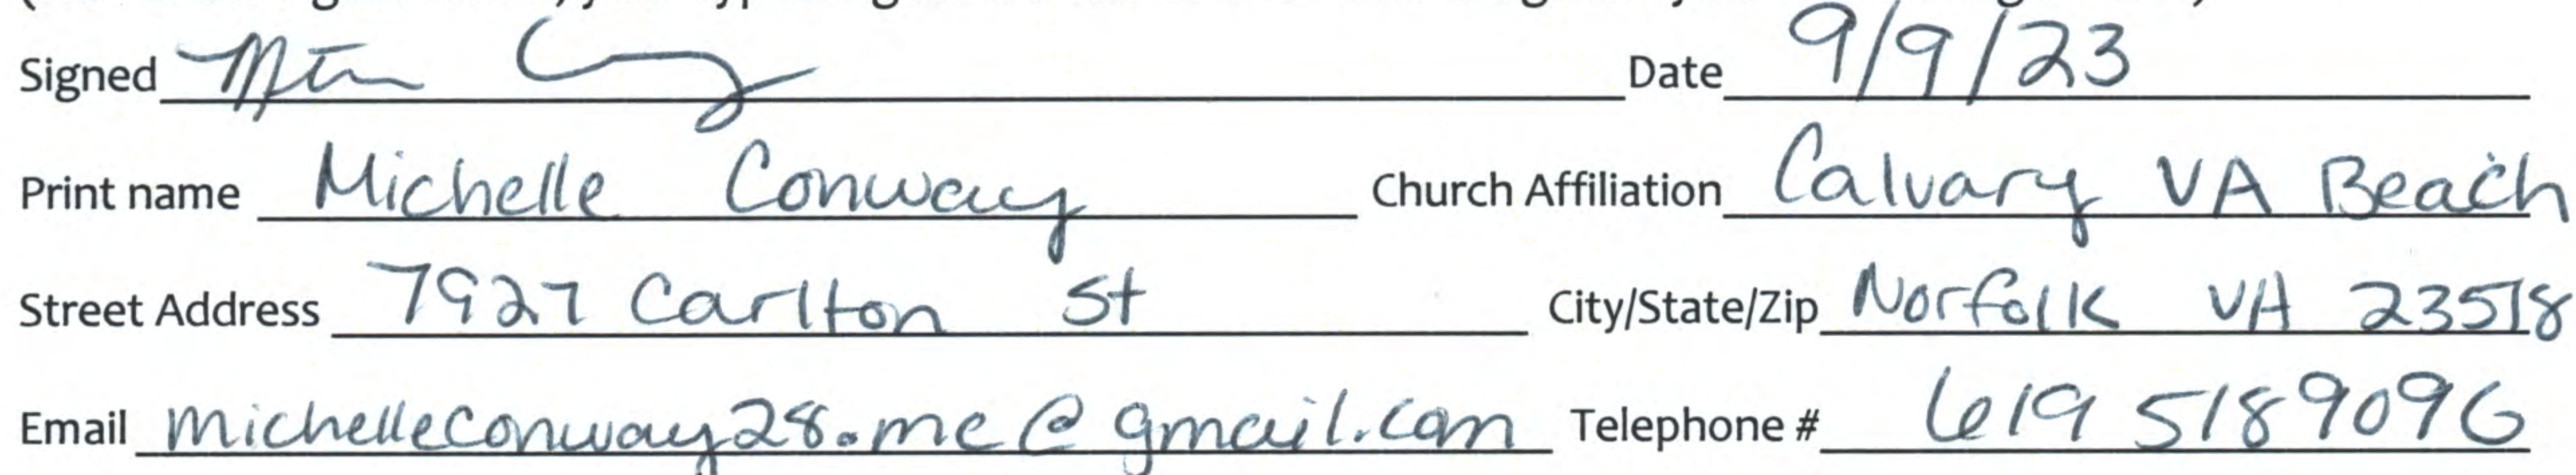 Signed Date 9/9/23
Print name Michelle Conway Church Affiliation Calvary VA Beach
Street Address 7927 Carlton St City/State/Zip Norfolk VA 23518
Email michelleconway28.mc@gmail.com Telephone # 619 5189096